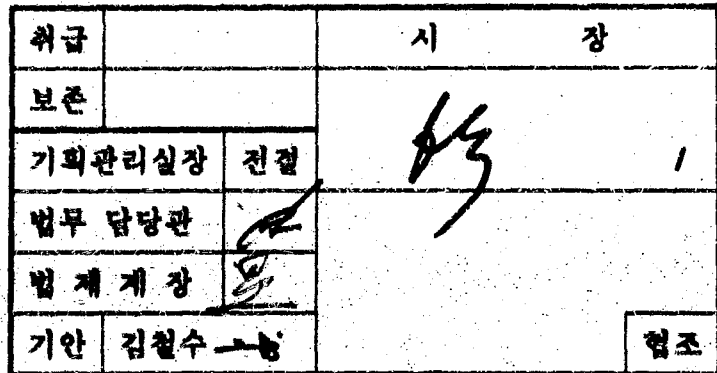 취급 시 장
보존
기획관리실장 전결
법무 담당관
법제계장
기안 김철수 협조